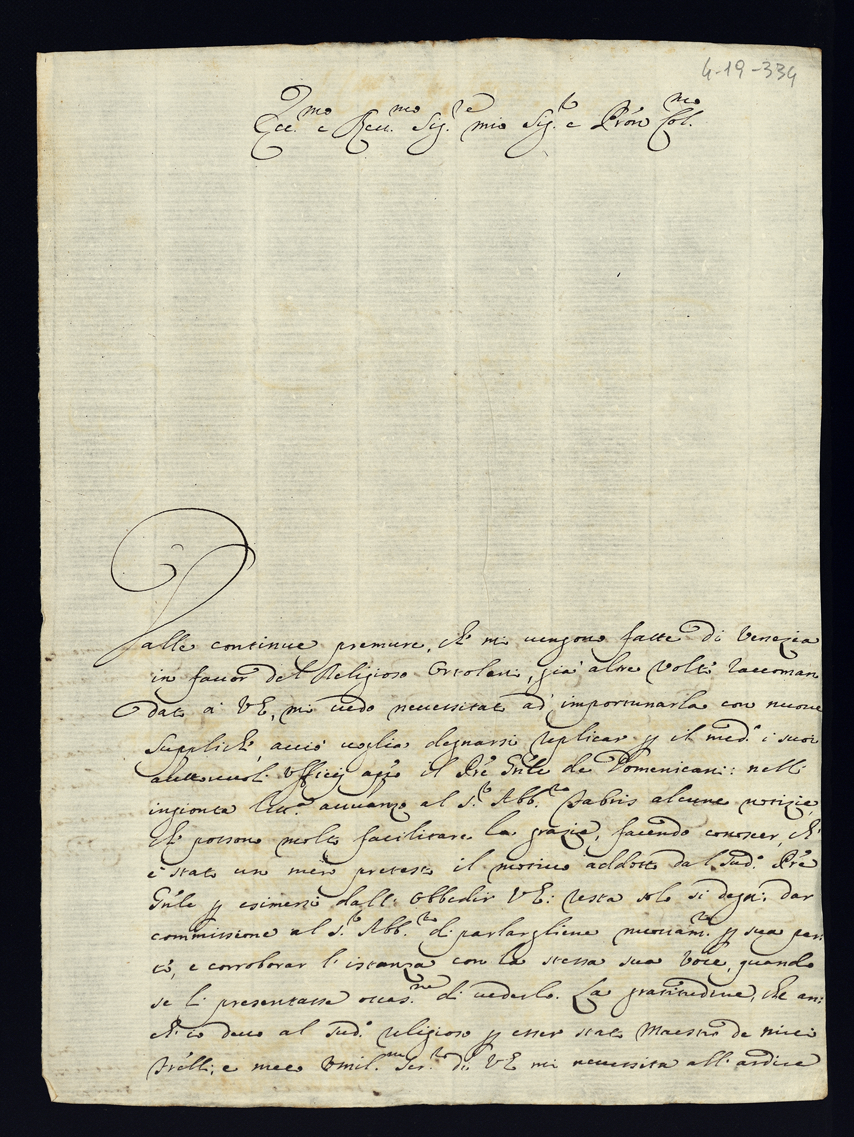 4-19-334
Ecc.mo e Reu.mo Sig.re mio Sig.r e Pron Col.mo
Dalle continue premure, che mi uengono fatte di Venezia
in fauor del Religioso Ortolani, già altre volte raccoman
dato a VE, mi uedo necessitato ad importunarla con nuoue
suppliche, acciò uoglia degnarsi replicar p il med.o i suoi
Vfficij apo il Pre Gnle de Domenicani: nell'
ingionta auuanzo al S.r Abb.te Fabris alcune notizie,
che possono molto facilitare la grazia, facendo conoscer, che
è stato un mero pretesto il motiuo addotto dal Sud.o Pre
Gnle p esimersi dall' obbedir VE: resta solo si degni dar
commissione al S.r Abb.te di parlargliene nuouam.te p sua par:
te, e corroborar l'istanza con la stessa sua voce, quando
se li presentasse occas.ne di uederlo. La gratitudine, che an:
ch'io deuo al Sud.o religioso p esser stato Maestro de miei
Frelli, e meco Vmil.mi Ser.ri di VE mi necessita all'ardire